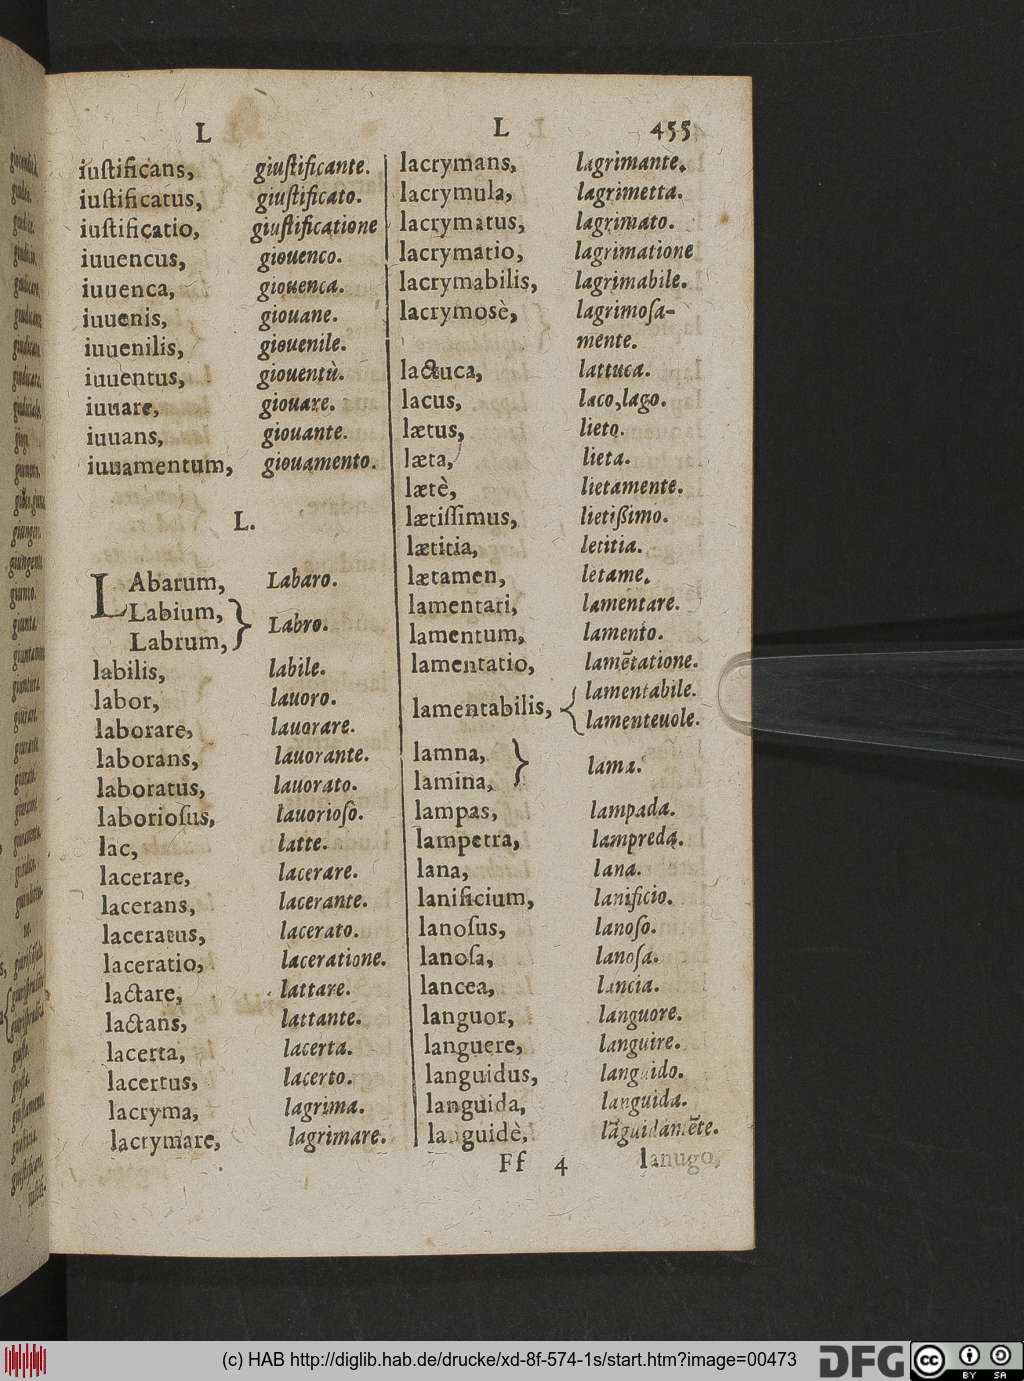 L L 455
iuſtificans, giuſtificante.
iuſtificatus, giuſtificato.
iuſtificatio, giuſtificatione
iuuencus, giouenco.
iuuenca, giouenca.
iuuenis, giouane.
iuuenilis, giouenile.
iuuentus, giouentù.
iuuare, giouare.
iuuans, giouante.
iuuamentum, giouamento.
L.
LAbarum, Labaro.
Labium,
Labrum, } Labro.
labilis, labile.
labor, lauoro.
laborare, lauorare.
laborans, lauorante.
laboratus, lauorato.
laborioſus, lauorioſo.
lac, latte.
lacerare, lacerare.
lacerans, lacerante.
laceratus, lacerato.
laceratio, laceratione.
lactare, lattare.
lactans, lattante.
lacerta, lacerta.
lacertus, lacerto.
lacryma, lagrima.
lacrymare, lagrimare.
lacrymans, lagrimante.
lacrymula, lagrimetta.
lacrymatus, lagrimato.
lacrymatio, lagrimatione
lacrymabilis, lagrimabile.
lacrymosè, lagrimoſa-
mente.
lactuca, lattuca.
lacus, laco, lago.
lætus, lieto.
læta, lieta.
lætè, lietamente.
lætiſſimus, lietißimo.
lætitia, letitia.
lætamen, letame.
lamentari, lamentare.
lamentum, lamento.
lamentatio, lamẽtatione.
lamentabilis, { lamentabile.
lamenteuole.
lamna,
lamina, } lama.
lampas, lampada.
lampetra, lampreda.
lana, lana.
lanificium, lanificio.
lanoſus, lanoſo.
lanoſa, lanoſa.
lancea, lancia.
languor, languore.
languere, languire.
languidus, languido.
languida, languida.
languidè, lãguidamẽte.
Ff 4 lanugo,
(c) HAB http://diglib.hab.de/drucke/xd-8f-574-1s/start.htm?image=00473
DFG
cc BY SA